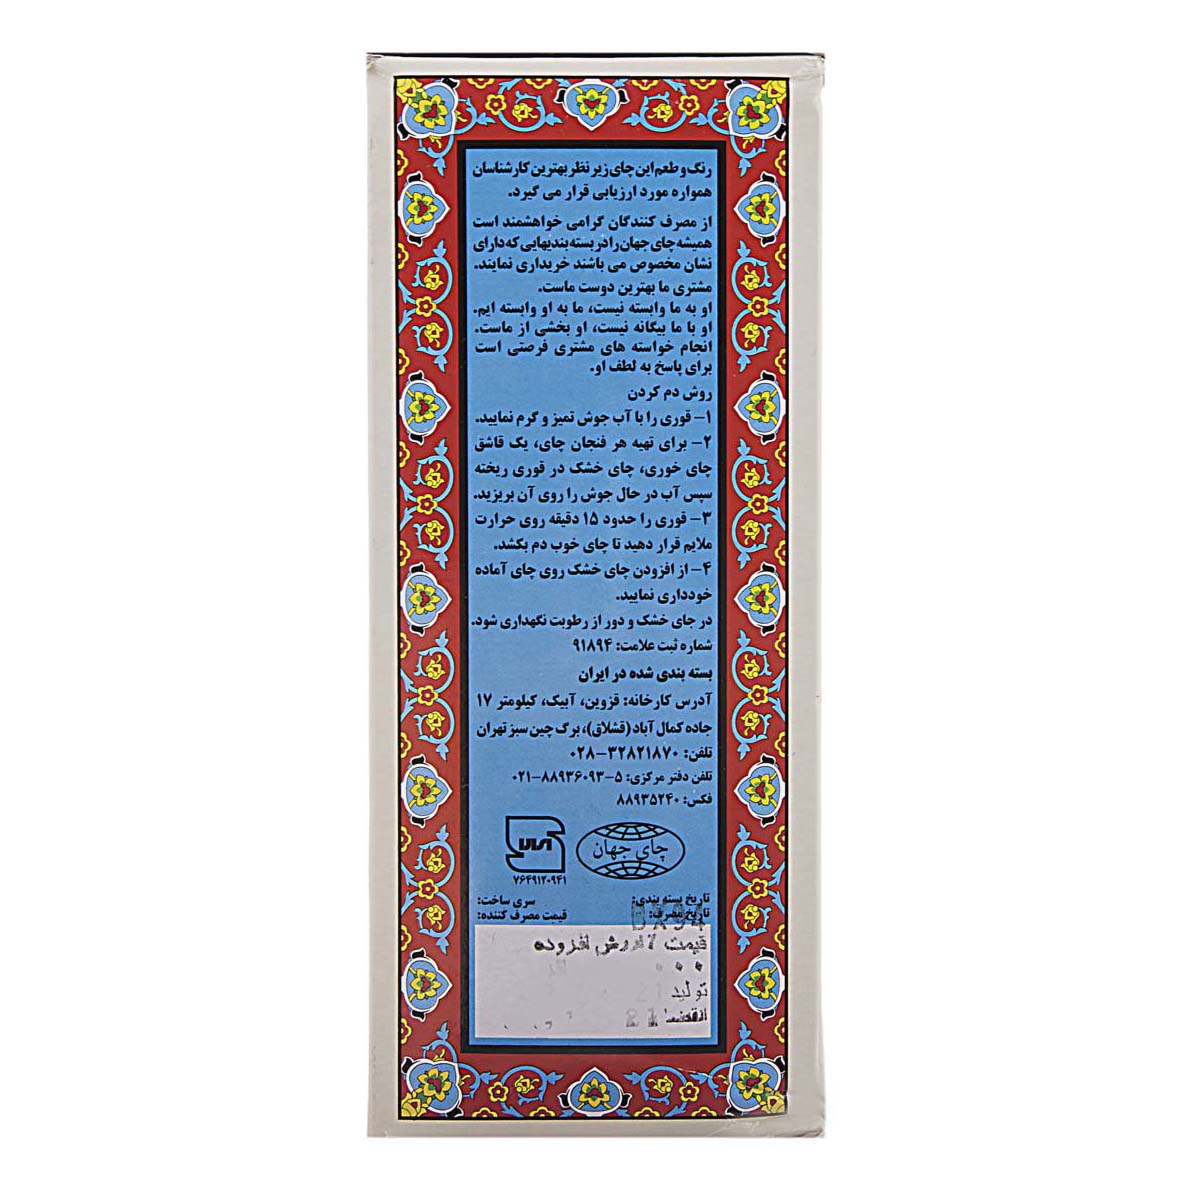 رنگ و طعم این چای زیر نظر بهترین کارشناسان
همواره مورد ارزیابی قرار می گیرد.
از مصرف کنندگان گرامی خواهشمند است
همیشه چای جهان را در بسته بندیهایی که دارای
نشان مخصوص می باشند خریداری نمایند.
مشتری ما بهترین دوست ماست.
او به ما وابسته نیست، ما به او وابسته ایم.
او با ما بیگانه نیست، او بخشی از ماست.
انجام خواسته های مشتری فرصتی است
برای پاسخ به لطف او.
روش دم کردن
۱- قوری را با آب جوش تمیز و گرم نمایید.
۲- برای تهیه هر فنجان چای، یک قاشق
چای خوری، چای خشک در قوری ریخته
سپس آب در حال جوش را روی آن بریزید.
۳- قوری را حدود ۱۵ دقیقه روی حرارت
ملایم قرار دهید تا چای خوب دم بکشد.
۴- از افزودن چای خشک روی چای آماده
خودداری نمایید.
در جای خشک و دور از رطوبت نگهداری شود.
شماره ثبت علامت: ۹۱۸۹۴
بسته بندی شده در ایران
آدرس کارخانه: قزوین، آبیک، کیلومتر ۱۷
جاده کمال آباد (قشلاق)، برگ چین سبز تهران
تلفن: ۳۲۸۲۱۸۷۰-۰۲۸
تلفن دفتر مرکزی: ۵-۸۸۹۳۶۰۹۳-۰۲۱
فکس: ۸۸۹۳۵۲۴۰
چای جهان
۷۶۴۹۱۲۰۹۴۱
تاریخ بسته بندی: سری ساخت:
تاریخ مصرف: قیمت مصرف کننده:
BX94
قیمت ارزش افزوده
۰۰۰
تولید 21
انقضا 21